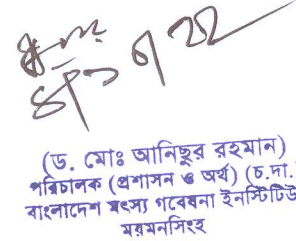 (ড. মোঃ আনিছুর রহমান)
পরিচালক (প্রশাসন ও অর্থ) (চ.দা.
বাংলাদেশ মৎস্য গবেষনা ইনস্টিটিউ
ময়মনসিংহ